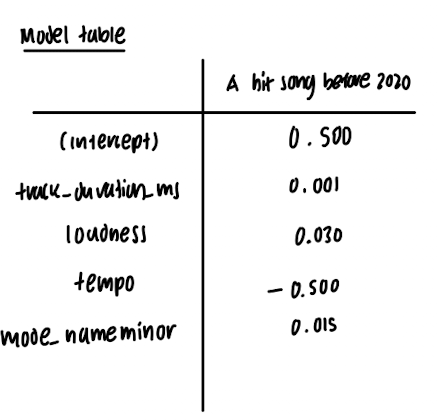 Model table
A hit song before 2020
(intercept) 0.500
track_duration_ms 0.001
loudness 0.030
tempo - 0.500
mode_nameminor 0.015